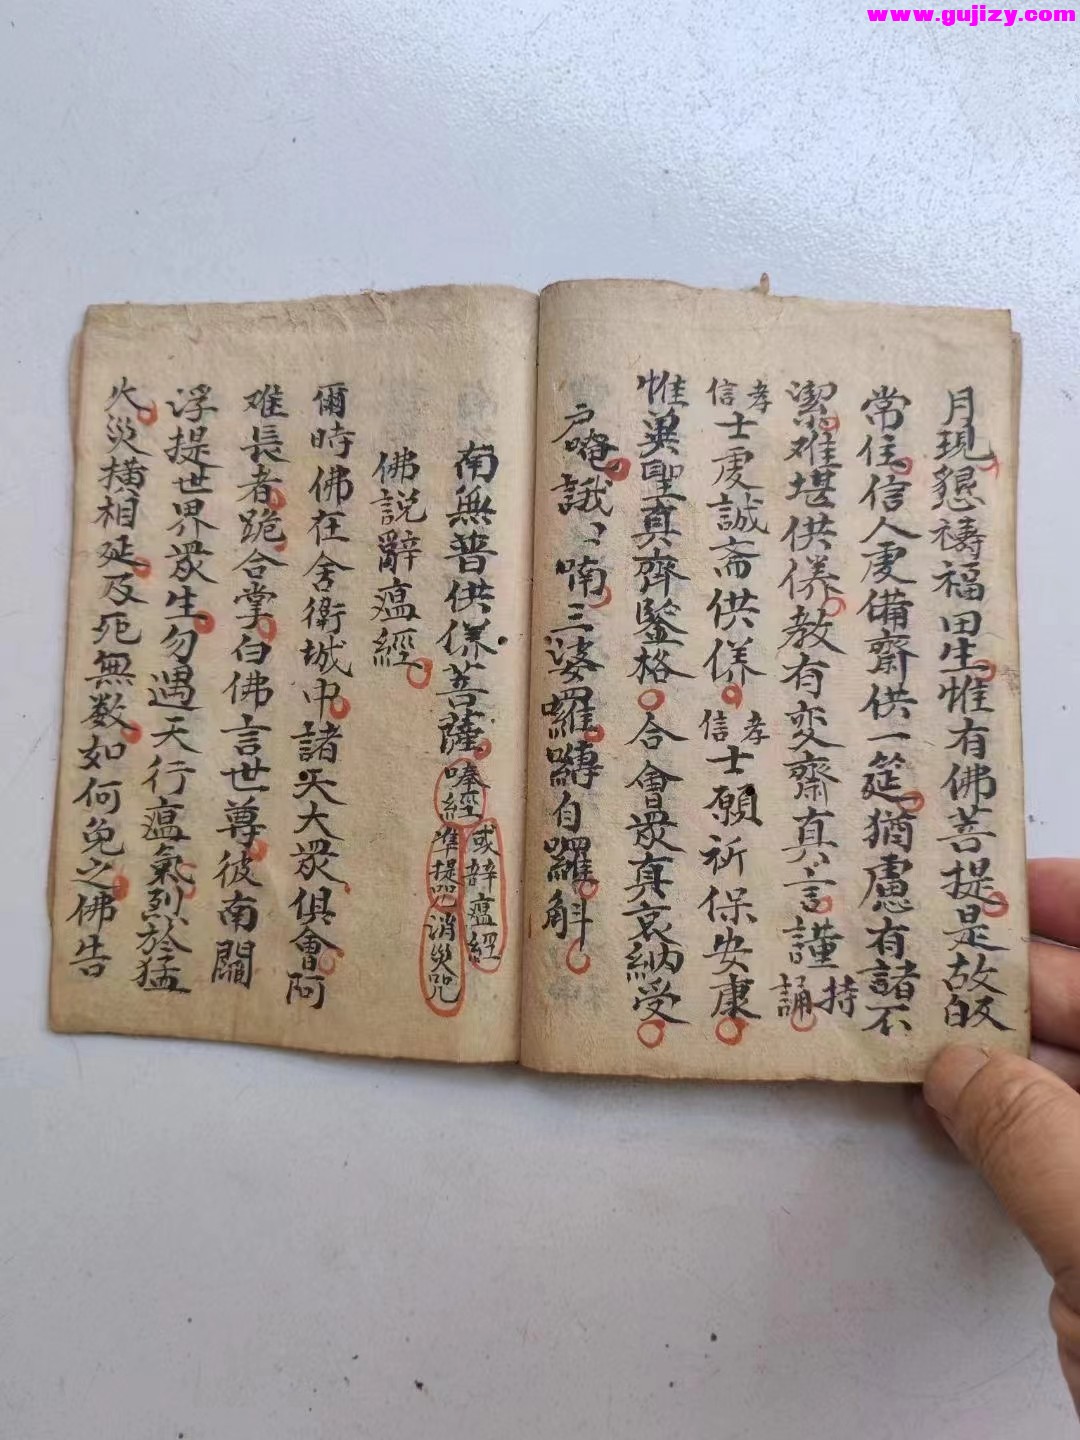 www.gujizy.com
月現懇禱福田生惟有佛菩提是故皈
常住信人虔備齋供一筵猶慮有諸不
潔难堪供养教有変齋真言謹持誦
孝信士虔誠斋供养孝信士願祈保安康
惟兾聖真齊鑒格合會眾真哀納受
唵誐〻喃三婆囉嚩自囉斛
南無普供养菩薩唪經或辞瘟經準提咒消災咒
佛説辭瘟經
爾時佛在舍衛城中諸天大眾俱會阿
难長者跪合掌白佛言世尊彼南閻
浮提世界眾生勿遇天行瘟氣烈於猛
火災横相延及死無数如何免之佛告